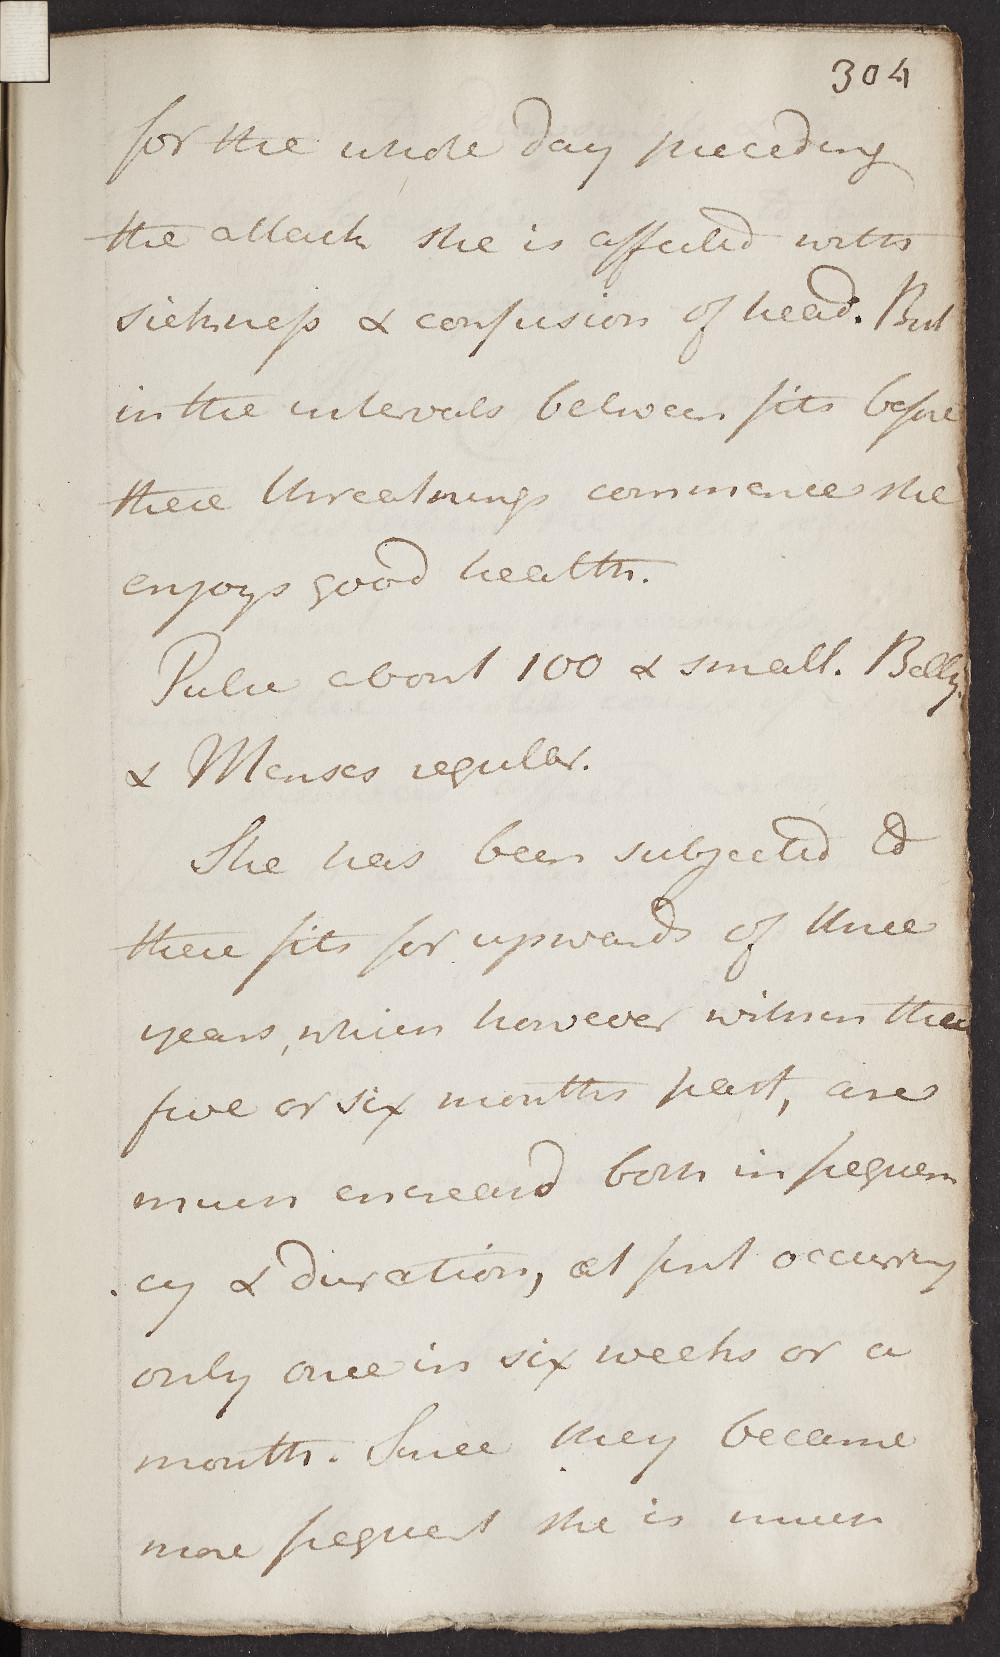 304
for the whole day preceding
the attack she is affected with
sickness & confusion of head. But
in the intervals between fits before
these threatnings commence she
enjoys good health.
Pulse about 100 & small. Belly
& Menses regular.
She has been subjected to
these fits for upwards of three
years, which however within these
five or six months past, are
much encreasd both in frequen
cy & duration, at first occurring
only once in six weeks or a
month. Since they became
more frequent she is much